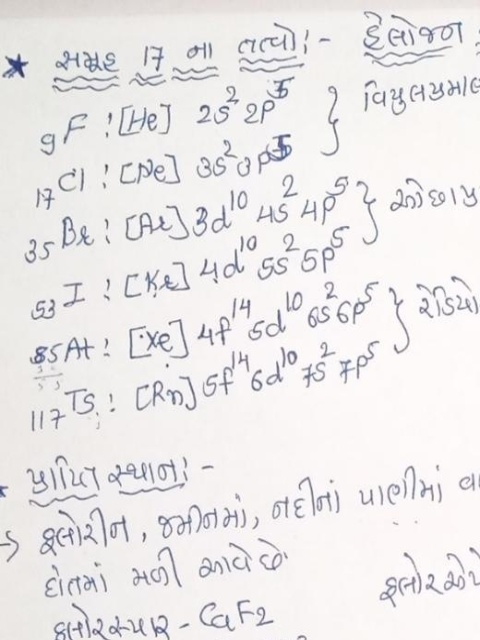 ★ સમૂહ 17 ના તત્વો :- હેલોજન
₉F : [He] 2s² 2p⁵ } વિપુલપ્રમાણ
₁₇Cl : [Ne] 3s² 3p⁵
₃₅Br : [Ar] 3d¹⁰ 4s² 4p⁵ } ઓછા પ્ર
₅₃I : [Kr] 4d¹⁰ 5s² 5p⁵
₈₅At : [Xe] 4f¹⁴ 5d¹⁰ 6s² 6p⁵ } રેડિયો
₁₁₇Ts : [Rn] 5f¹⁴ 6d¹⁰ 7s² 7p⁵
પ્રાપ્તિ સ્થાન :-
→ ફ્લોરીન, જમીનમાં, નદીનાં પાણીમાં
દાંતમાં મળી આવે છે.
ફ્લોરસ્પાર - CaF₂